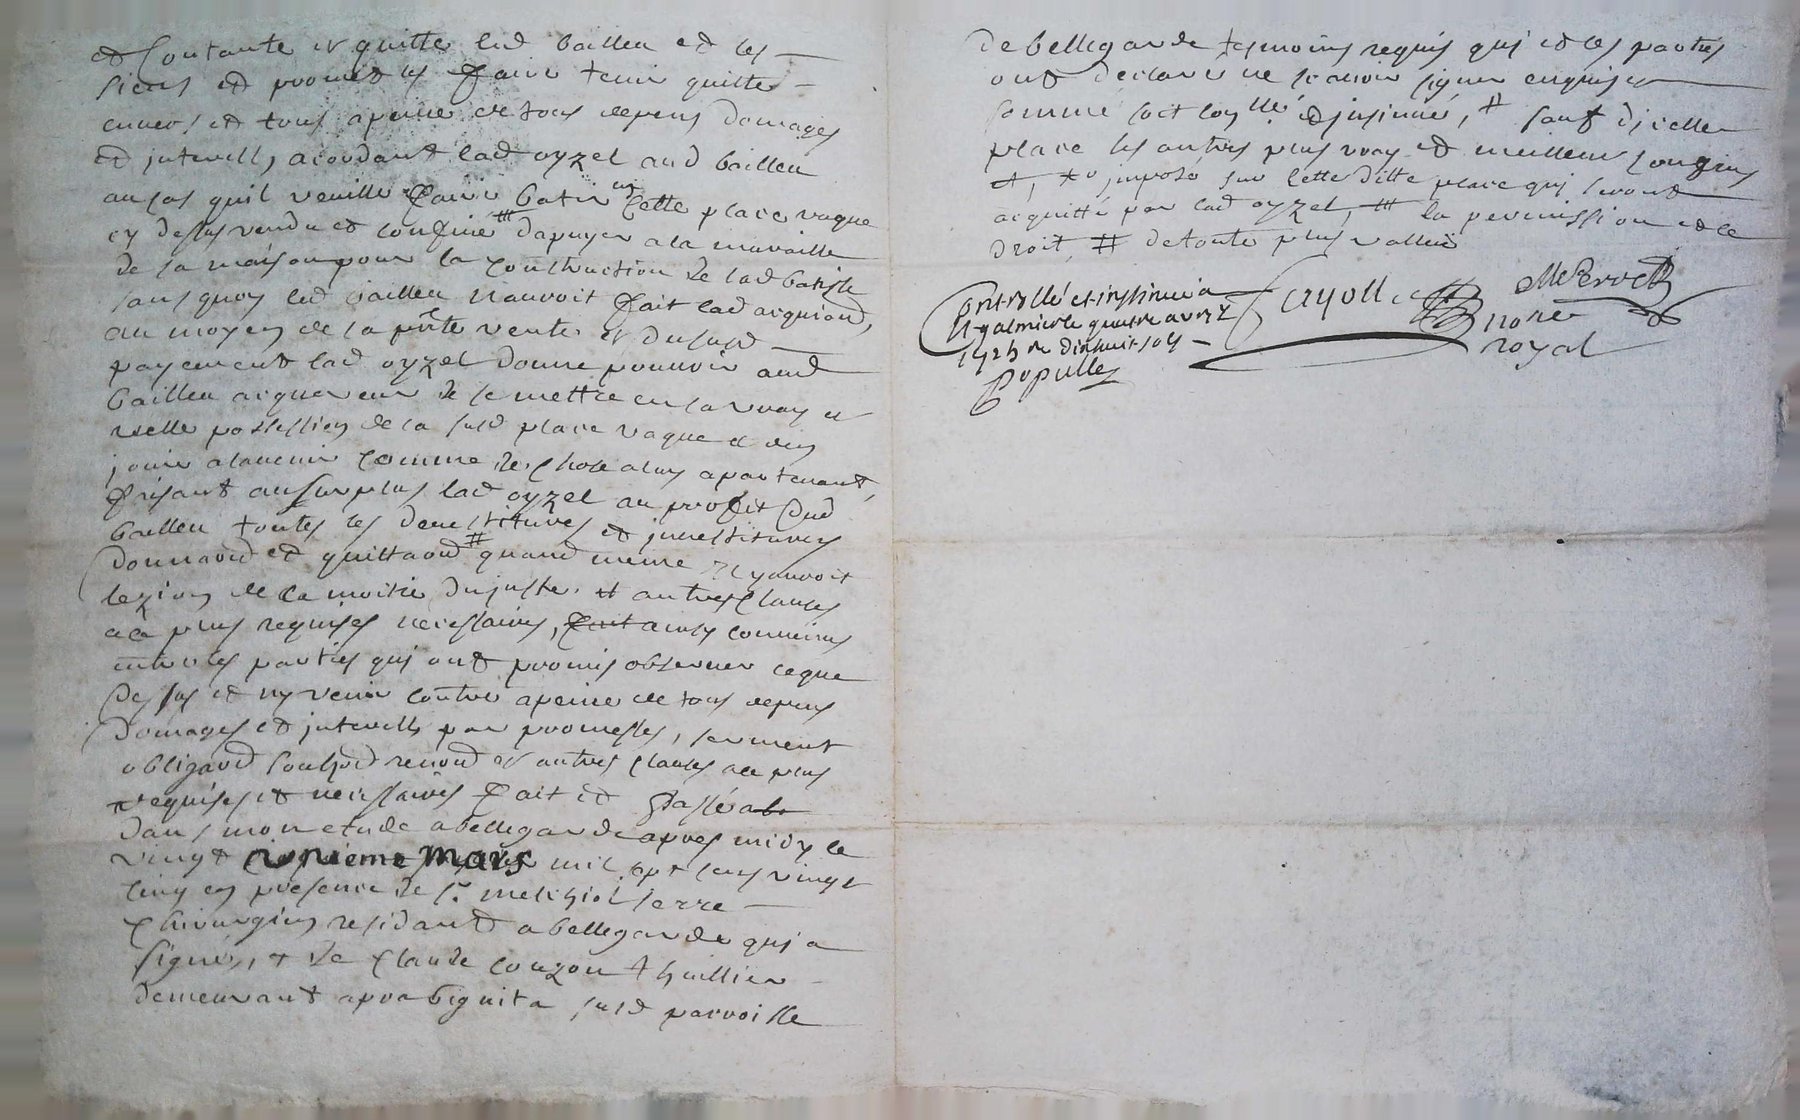 et contante et quitte led bailleu et les
siens et promet les faire tenir quitte
envers et tous apeine de tous depens domages
et interells, acordant lad oyzel aud bailleu
au cas quil veuille faire batir en cette place vague
cy dessus vendu et confiné # dapuyer a la muraille
de sa maison pour la construction de lad batisse
sans quoy led bailleu nauroit fait lad acquiond,
au moyen de la pñte vente et du susd
payement lad oyzel donne pouvoir aud
bailleu acquereur de se mettre en la vray et
reelle possession de la susd place vague et den
jouir alavenir comme de chose aluy apartenant,
faisant au surplus lad oyzel au profit dud
bailleu toutes les devestitures et investitures
donnaond et quittaond # quand meme il y auroit
lezion de la moitié du juste, et autres clauses
ace plus requises necessaires, fait ainsy convenus
entre les parties qui ont promis observer ceque
dessus et ny venir contre apeine de tous depens
domages et interells par promesses, serment
obligaond soubzond renond et autres clauses ace plus
requises et necessaires fait et passé a be
dans mon etude a bellegarde apres midy le
vingt cinquieme mars mil sept cens vingt
cinq en presence de sr. melchiol serre
chirurgien residant a bellegarde qui a
signé, et de claude couzon thuillier
demeurant apra bignita susd parroisse
de bellegarde tesmoins requis qui et les parties
ont declaré ne scavoir signer enquis et
sommé soit conllé et insinué, # sauf dicelle
place les autres plus vray et meilleurs confins
et, + imposé sur cette ditte place qui seront
acquitté par lad oyzel, # la permission et le
droit, # de toute plus valleur
Controllé et insinué a
St galmier le quatre avril
1725 re dixhuit sols
Populle
Cryoll
notre
royal